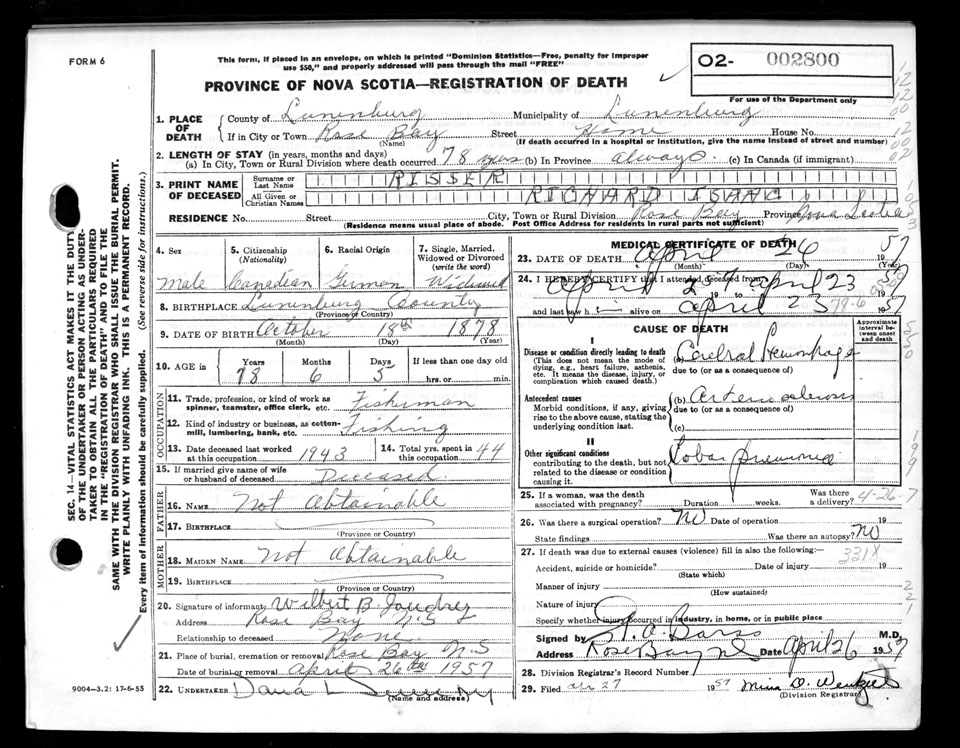 FORM 6
This form, if placed in an envelope, on which is printed "Dominion Statistics—Free, penalty for improper
use $50," and properly addressed will pass through the mail "FREE"
PROVINCE OF NOVA SCOTIA—REGISTRATION OF DEATH
O2- 002800
For use of the Department only
1. PLACE OF DEATH County of Lunenburg Municipality of Lunenburg
If in City or Town Rose Bay Street Home House No.
(Name) (If death occurred in a hospital or institution, give the name instead of street and number)
2. LENGTH OF STAY (in years, months and days)
(a) In City, Town or Rural Division where death occurred 78 yrs (b) In Province always (c) In Canada (if immigrant)
3. PRINT NAME OF DECEASED
Surname or Last Name RISSER
All Given or Christian Names RICHARD ISAAC
RESIDENCE No. Street City, Town or Rural Division Rose Bay Province Nova Scotia
(Residence means usual place of abode. Post Office Address for residents in rural parts not sufficient)
4. Sex Male
5. Citizenship (Nationality) Canadian
6. Racial Origin German
7. Single, Married, Widowed or Divorced (write the word) Widowed
8. BIRTHPLACE Lunenburg County
(Province or Country)
9. DATE OF BIRTH October 18th 1878
(Month) (Day) (Year)
10. AGE in Years 78 Months 6 Days 5 If less than one day old hrs. or min.
OCCUPATION
11. Trade, profession, or kind of work as spinner, teamster, office clerk, etc. Fisherman
12. Kind of industry or business, as cotton-mill, lumbering, bank, etc. Fishing
13. Date deceased last worked at this occupation 1943
14. Total yrs. spent in this occupation 44
15. If married give name of wife or husband of deceased Deceased
FATHER
16. NAME Not Obtainable
17. BIRTHPLACE
(Province or Country)
MOTHER
18. MAIDEN NAME Not Obtainable
19. BIRTHPLACE
(Province or Country)
20. Signature of informant Wilbert B. Jaudrey
Address Rose Bay N.S
Relationship to deceased None
21. Place of burial, cremation or removal Rose Bay N.S
Date of burial or removal April 26th 1957
22. UNDERTAKER Dana L
(Name and address)
9004-3.2: 17-6-55
MEDICAL CERTIFICATE OF DEATH
23. DATE OF DEATH April 26 1957
(Month) (Day) (Year)
24. I HEREBY CERTIFY that I attended deceased from
April 2 19 to April 23 1957
and last saw him alive on April 23 1957
78-6
CAUSE OF DEATH
Approximate interval between onset and death
I
Disease or condition directly leading to death (a) Cerebral Hemorrhage
(This does not mean the mode of dying, e.g., heart failure, asthenia, etc. It means the disease, injury, or complication which caused death.)
due to (or as a consequence of)
Antecedent causes (b) Arteriosclerosis
Morbid conditions, if any, giving rise to the above cause, stating the underlying condition last.
due to (or as a consequence of)
(c)
II
Other significant conditions Lobar pneumonia
contributing to the death, but not related to the disease or condition causing it.
25. If a woman, was the death associated with pregnancy? Duration weeks. Was there a delivery? 4-26-7
26. Was there a surgical operation? No Date of operation 19
State findings Was there an autopsy? No
27. If death was due to external causes (violence) fill in also the following:—
331X
Accident, suicide or homicide? Date of injury 19
(State which)
Manner of injury
(How sustained)
Nature of injury
Specify whether injury occurred in industry, in home, or in public place
Signed by A. Barss M.D.
Address Rose Bay NS Date April 26 1957
28. Division Registrar's Record Number
29. Filed Apr 27 1957 D. Wentzel
(Division Registrar)
SEC. 14—VITAL STATISTICS ACT MAKES IT THE DUTY
OF THE UNDERTAKER OR PERSON ACTING AS UNDER-
TAKER TO OBTAIN ALL THE PARTICULARS REQUIRED
IN THE "REGISTRATION OF DEATH" AND TO FILE THE
SAME WITH THE DIVISION REGISTRAR WHO SHALL ISSUE THE BURIAL PERMIT.
WRITE PLAINLY WITH UNFADING INK. THIS IS A PERMANENT RECORD.
Every item of information should be carefully supplied. (See reverse side for instructions.)